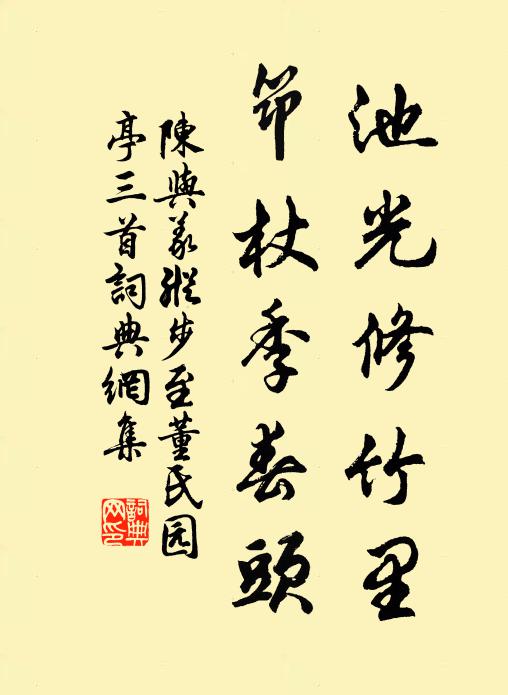 池光修竹里
筇杖季春頭
陳與義縱步至董氏园
亭三首詞典網集
詞典網印